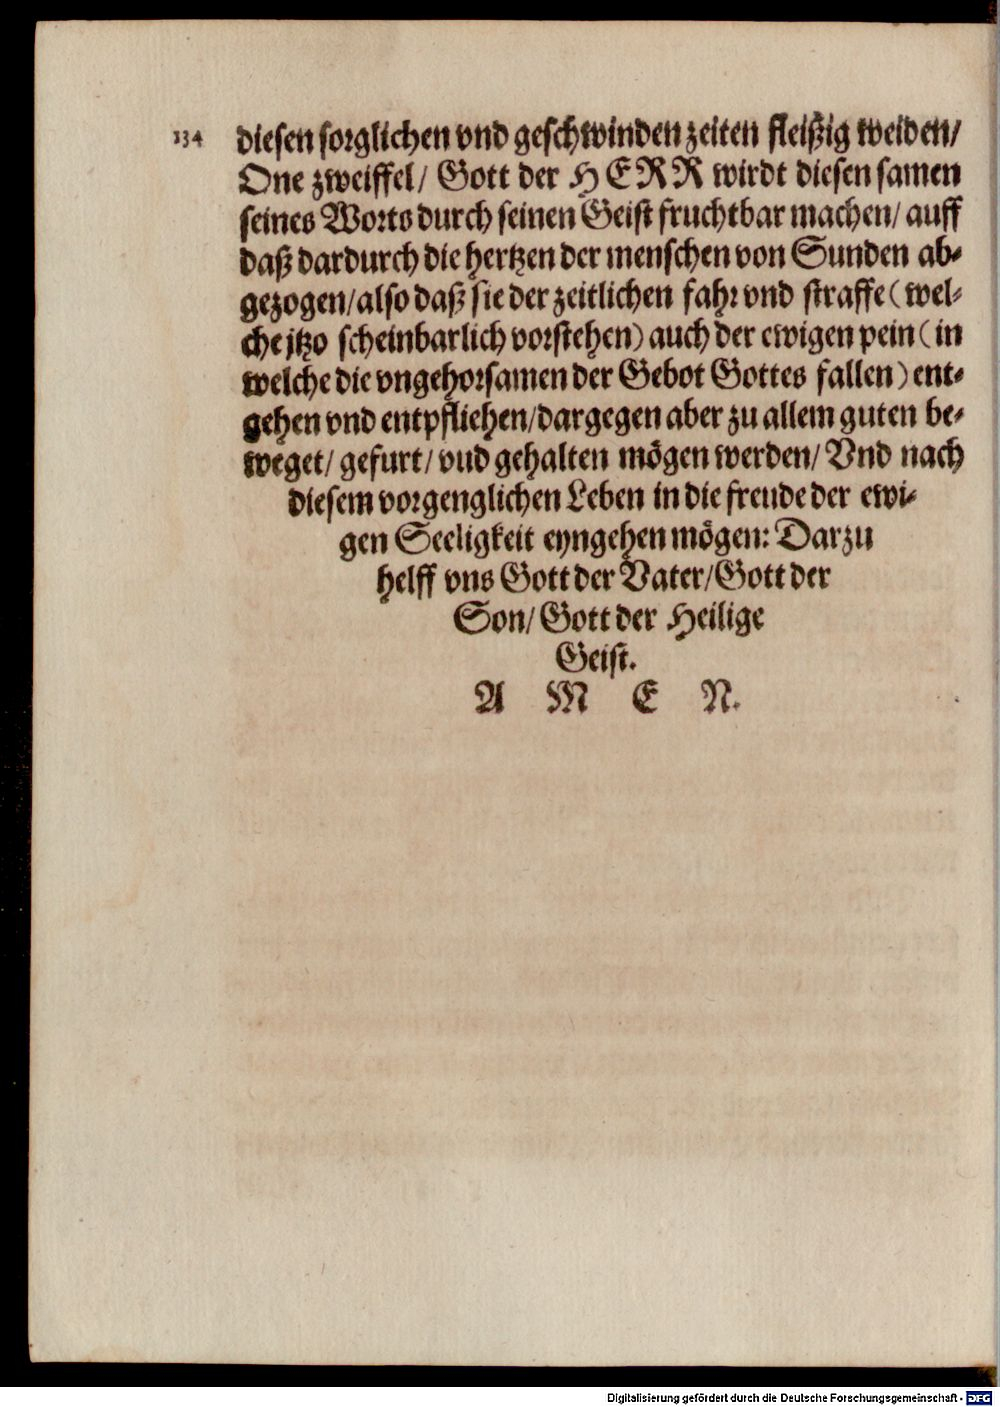 134 diesen sorglichen vnd geschwinden zeiten fleißig weiden/
One zweiffel/ Gott der HERR wirdt diesen samen
seines Worts durch seinen Geist fruchtbar machen/ auff
daß dardurch die hertzen der menschen von Sunden ab-
gezogen/ also daß sie der zeitlichen fahr vnd straffe (wel-
che jtzo scheinbarlich vorstehen) auch der ewigen pein (in
welche die vngehorsamen der Gebot Gottes fallen) ent-
gehen vnd entpfliehen/ dargegen aber zu allem guten be-
weget/ gefurt/ vnd gehalten mögen werden/ Vnd nach
diesem vorgenglichen Leben in die freude der ewi-
gen Seeligkeit eyngehen mögen: Darzu
helff vns Gott der Vater/ Gott der
Son/ Gott der Heilige
Geist.
A M E N.
Digitalisierung gefördert durch die Deutsche Forschungsgemeinschaft - DFG